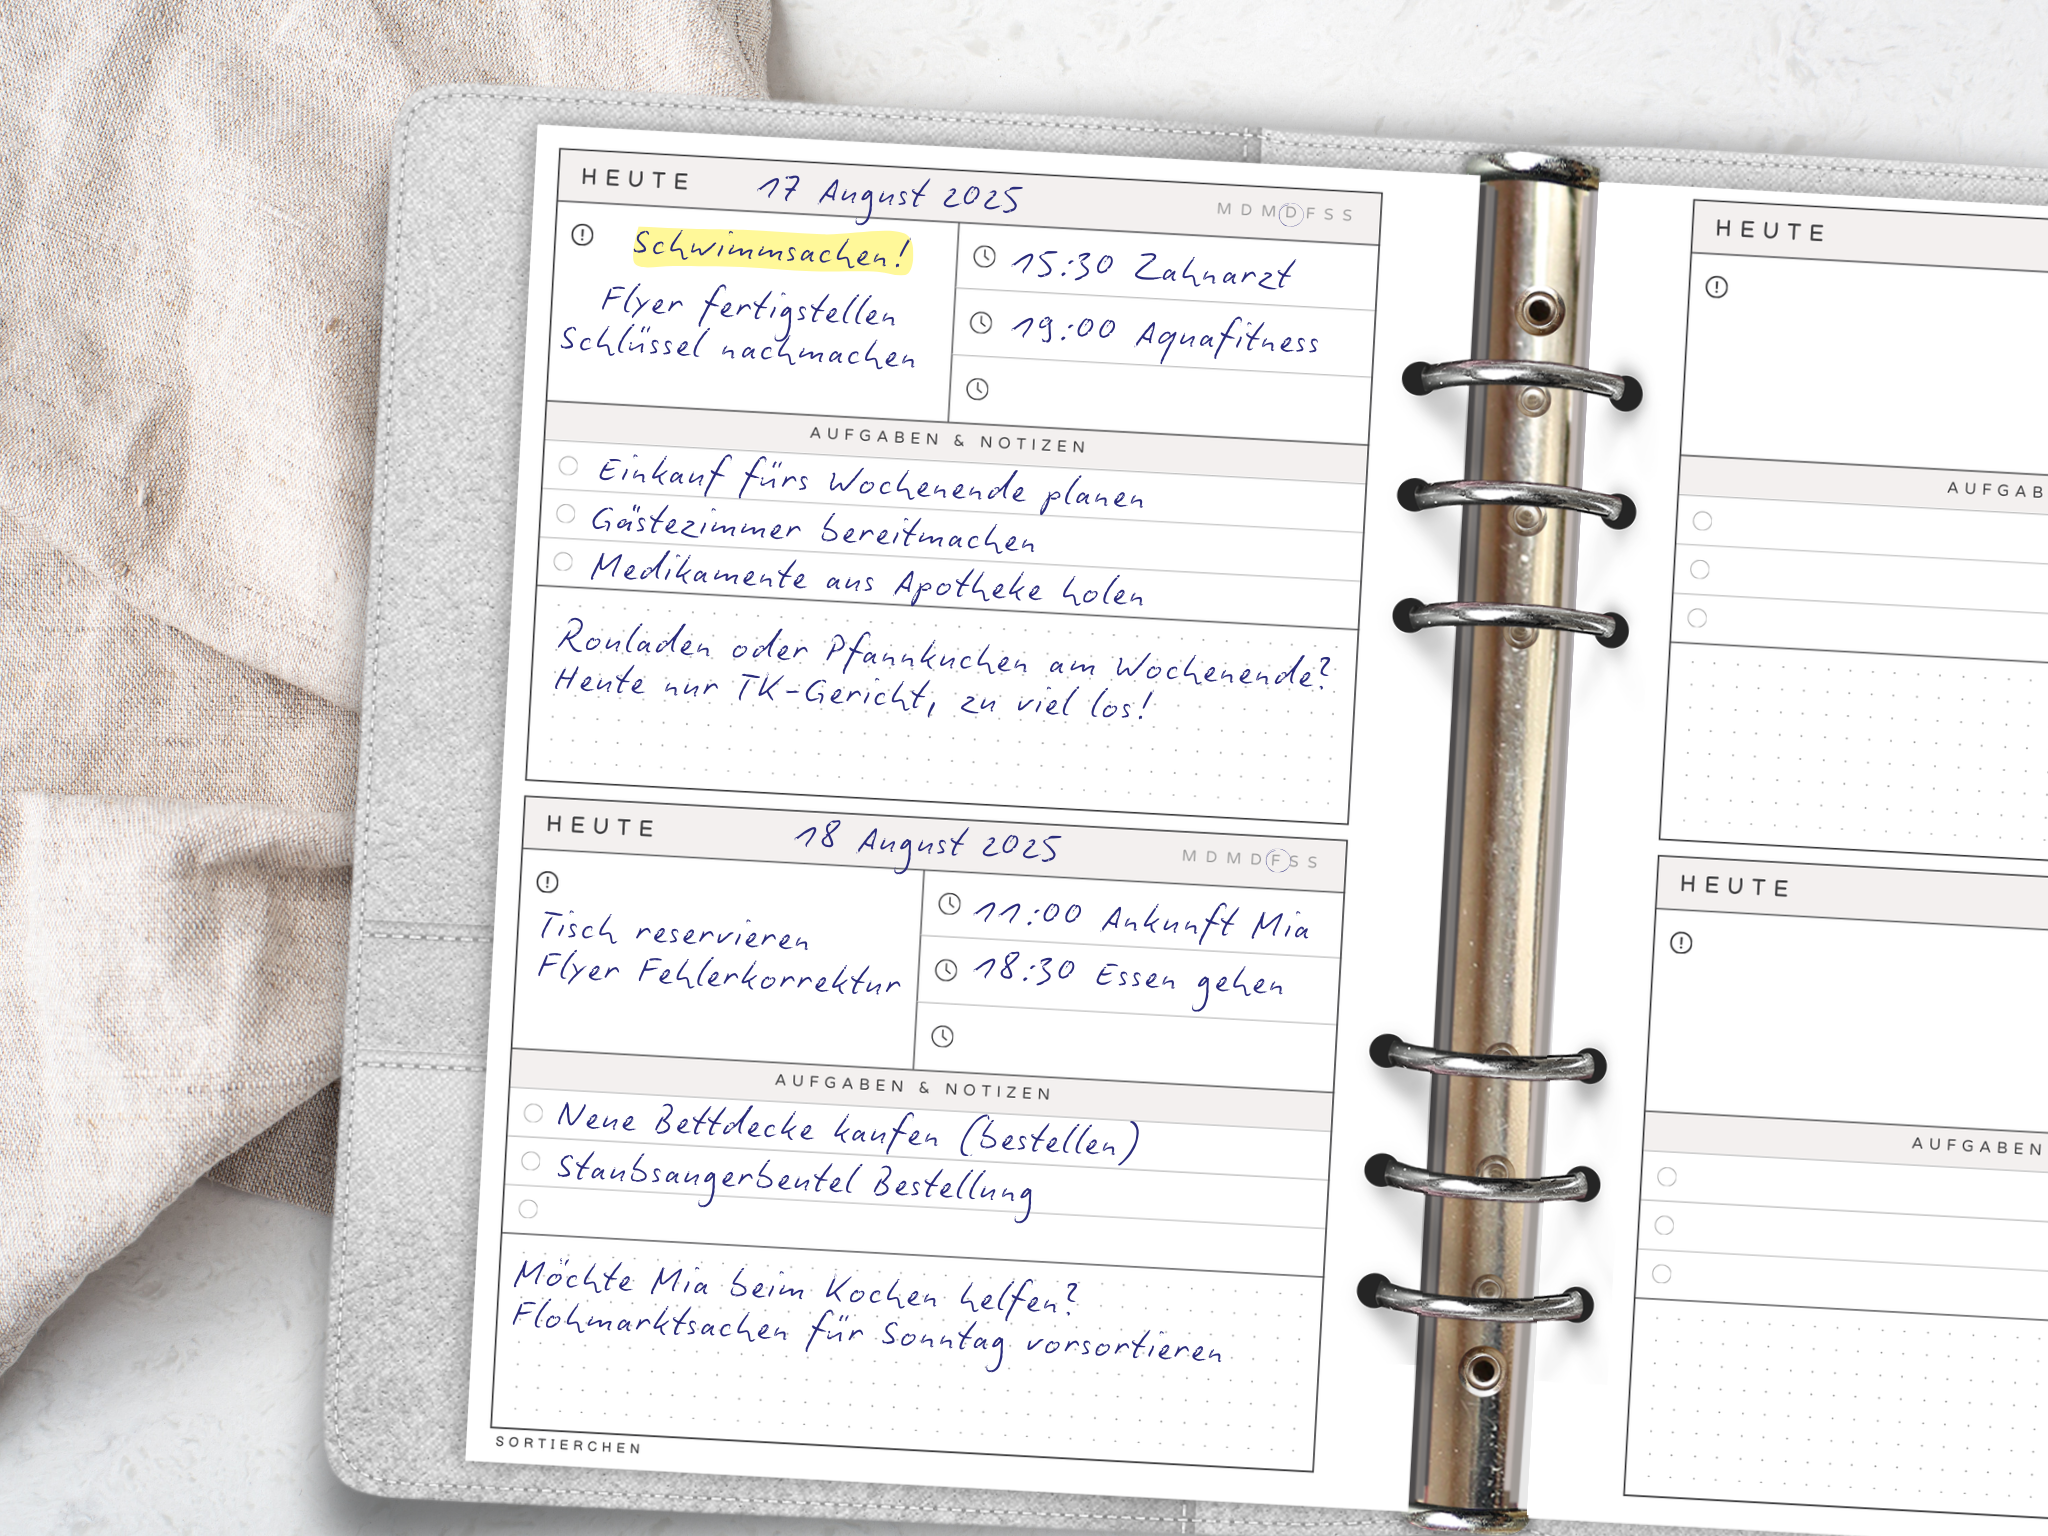 HEUTE 17 August 2025 M D M D F S S
Schwimmsachen!
Flyer fertigstellen
Schlüssel nachmachen
15:30 Zahnarzt
19:00 Aquafitness
AUFGABEN & NOTIZEN
Einkauf fürs Wochenende planen
Gästezimmer bereitmachen
Medikamente aus Apotheke holen
Rouladen oder Pfannkuchen am Wochenende?
Heute nur TK-Gericht, zu viel los!
HEUTE 18 August 2025 M D M D F S S
Tisch reservieren
Flyer Fehlerkorrektur
11:00 Ankunft Mia
18:30 Essen gehen
AUFGABEN & NOTIZEN
Neue Bettdecke kaufen (bestellen)
Staubsaugerbeutel Bestellung
Möchte Mia beim Kochen helfen?
Flohmarktsachen für Sonntag vorsortieren
SORTIERCHEN
HEUTE
AUFGAB
HEUTE
AUFGABEN